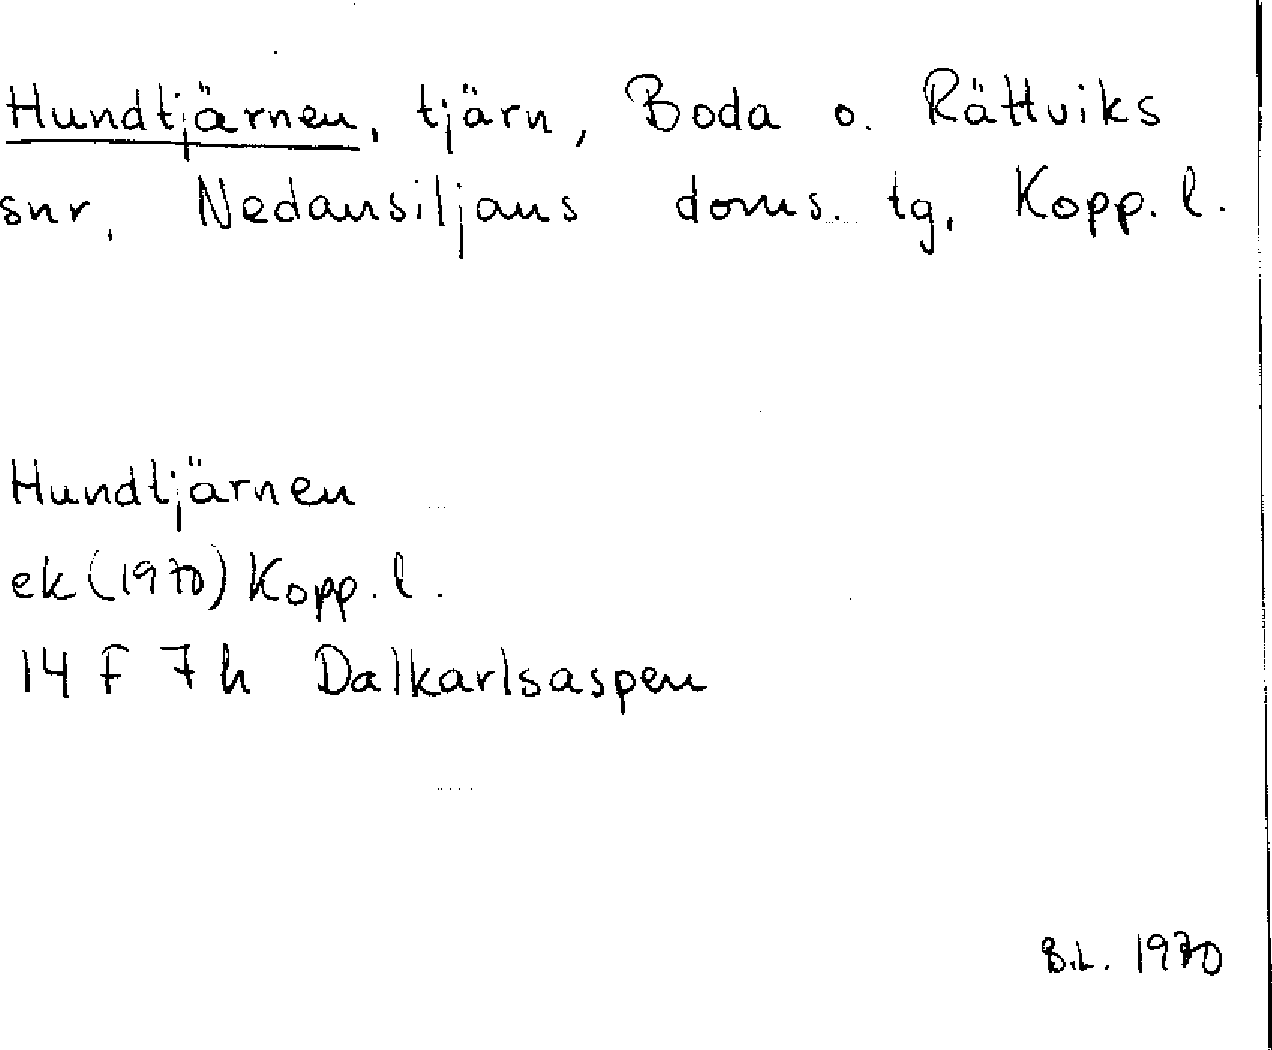 Hundtjärnen, tjärn, Boda o. Rättviks
snr, Nedansiljans doms. tg, Kopp. l.
Hundtjärnen
ek (1970) Kopp. l.
14 F 7 h Dalkarlsaspen
B.L. 1970